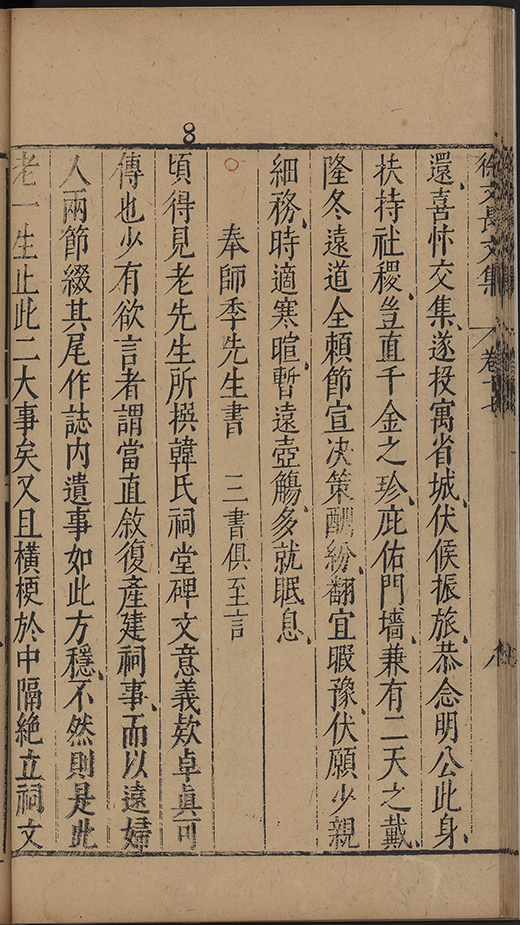 8
徐文長文集 卷十七 八
還喜忭交集、遂投寓省城、伏候振旅、恭念明公此身、
扶持社稷、豈直千金之珍、庇佑門墻、兼有二天之戴、
隆冬遠道全賴節宣决策酬紛、翻宜暇豫、伏願少親
細務、時適寒暄、暫遠壺觴、多就眠息、
奉師季先生書 三書俱至言
頃得見老先生所撰韓氏祠堂碑文意義欵卓眞可
傳也少有欲言者謂當直敘復產建祠事、而以遠婦
人兩節綴其尾作誌內遺事如此方穩、不然則是此
老一生止此二大事矣又且橫梗於中隔絶立祠文